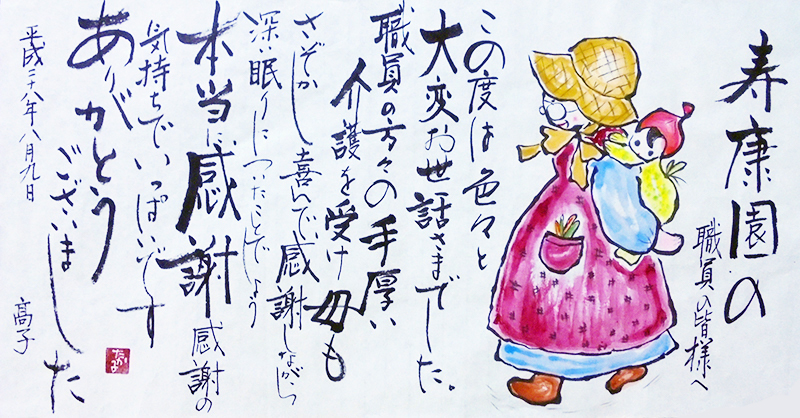 寿康園の
職員の皆様へ
この度は色々と
大変お世話さまでした。
職員の方々の手厚い
介護を受け母も
さぞかし喜んで感謝しながら
深い眠りについたことでしょう
本当に感謝感謝の
気持ちでいっぱいです
ありがとう
ございました
平成二十八年八月九日
高子
たかこ